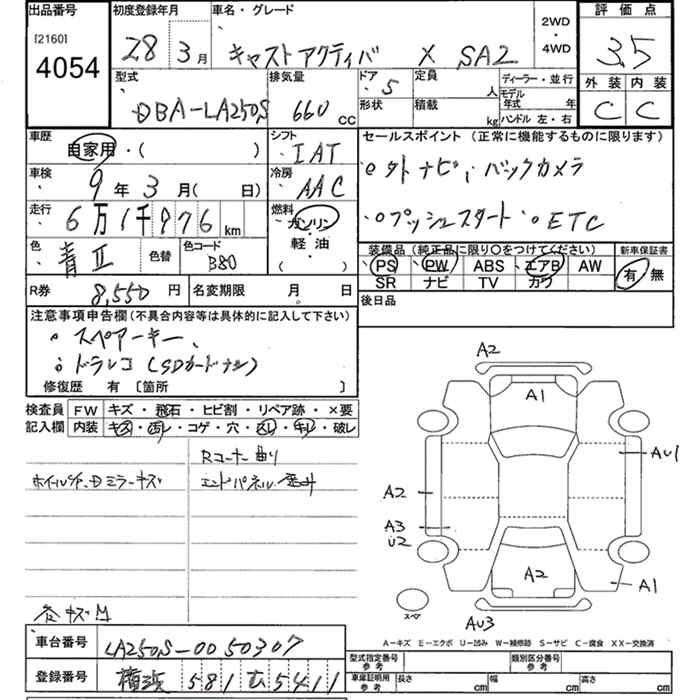 出品番号
[2160]
4054
初度登録年月
28年 3月
車名・グレード
キャストアクティバ X SA2
2WD
4WD
評価点
3.5
外装 内装
C C
型式
DBA-LA250S
排気量
660 cc
ドア
5
形状
定員
人
積載
kg
ディーラー・並行
モデル年式 年
ハンドル 左・右
車歴
自家用・( )
車検
9年 3月( 日)
走行
6万1千976 km
色
青II
色替
色コード
B80
シフト
IAT
冷房
AAC
燃料
ガソリン
軽油
( )
セールスポイント(正常に機能するものに限ります)
外ナビ、バックカメラ
プッシュスタート ETC
装備品(純正品に限り○をつけてください)
PS PW ABS エアB AW
SR ナビ TV カワ
新車保証書
有 無
R券 8,550円
名変期限 月 日
後日品
注意事項申告欄(不具合内容等は具体的に記入して下さい)
スペアーキー、
ドラレコ(SDカードナシ)
修復歴 有 〔箇所 〕
検査員記入欄
FW キズ・飛石・ヒビ割・リペア跡・×要
内装 キズ・汚レ・コゲ・穴・スレ・キレ・破レ
Rコーナー曲り
Dミラーキズ
エンドパネル
A2
A1
AU1
A2
A3
U2
A2
A1
AU3
スペア
A-キズ E-エクボ U-凹み W-補修跡 S-サビ C-腐食 XX-交換済
車台番号
LA250S-0050307
登録番号
横浜 581 む 5411
型式指定番号
参考
類別区分番号
参考
車庫証明用
参考
長さ cm
幅 cm
高さ cm